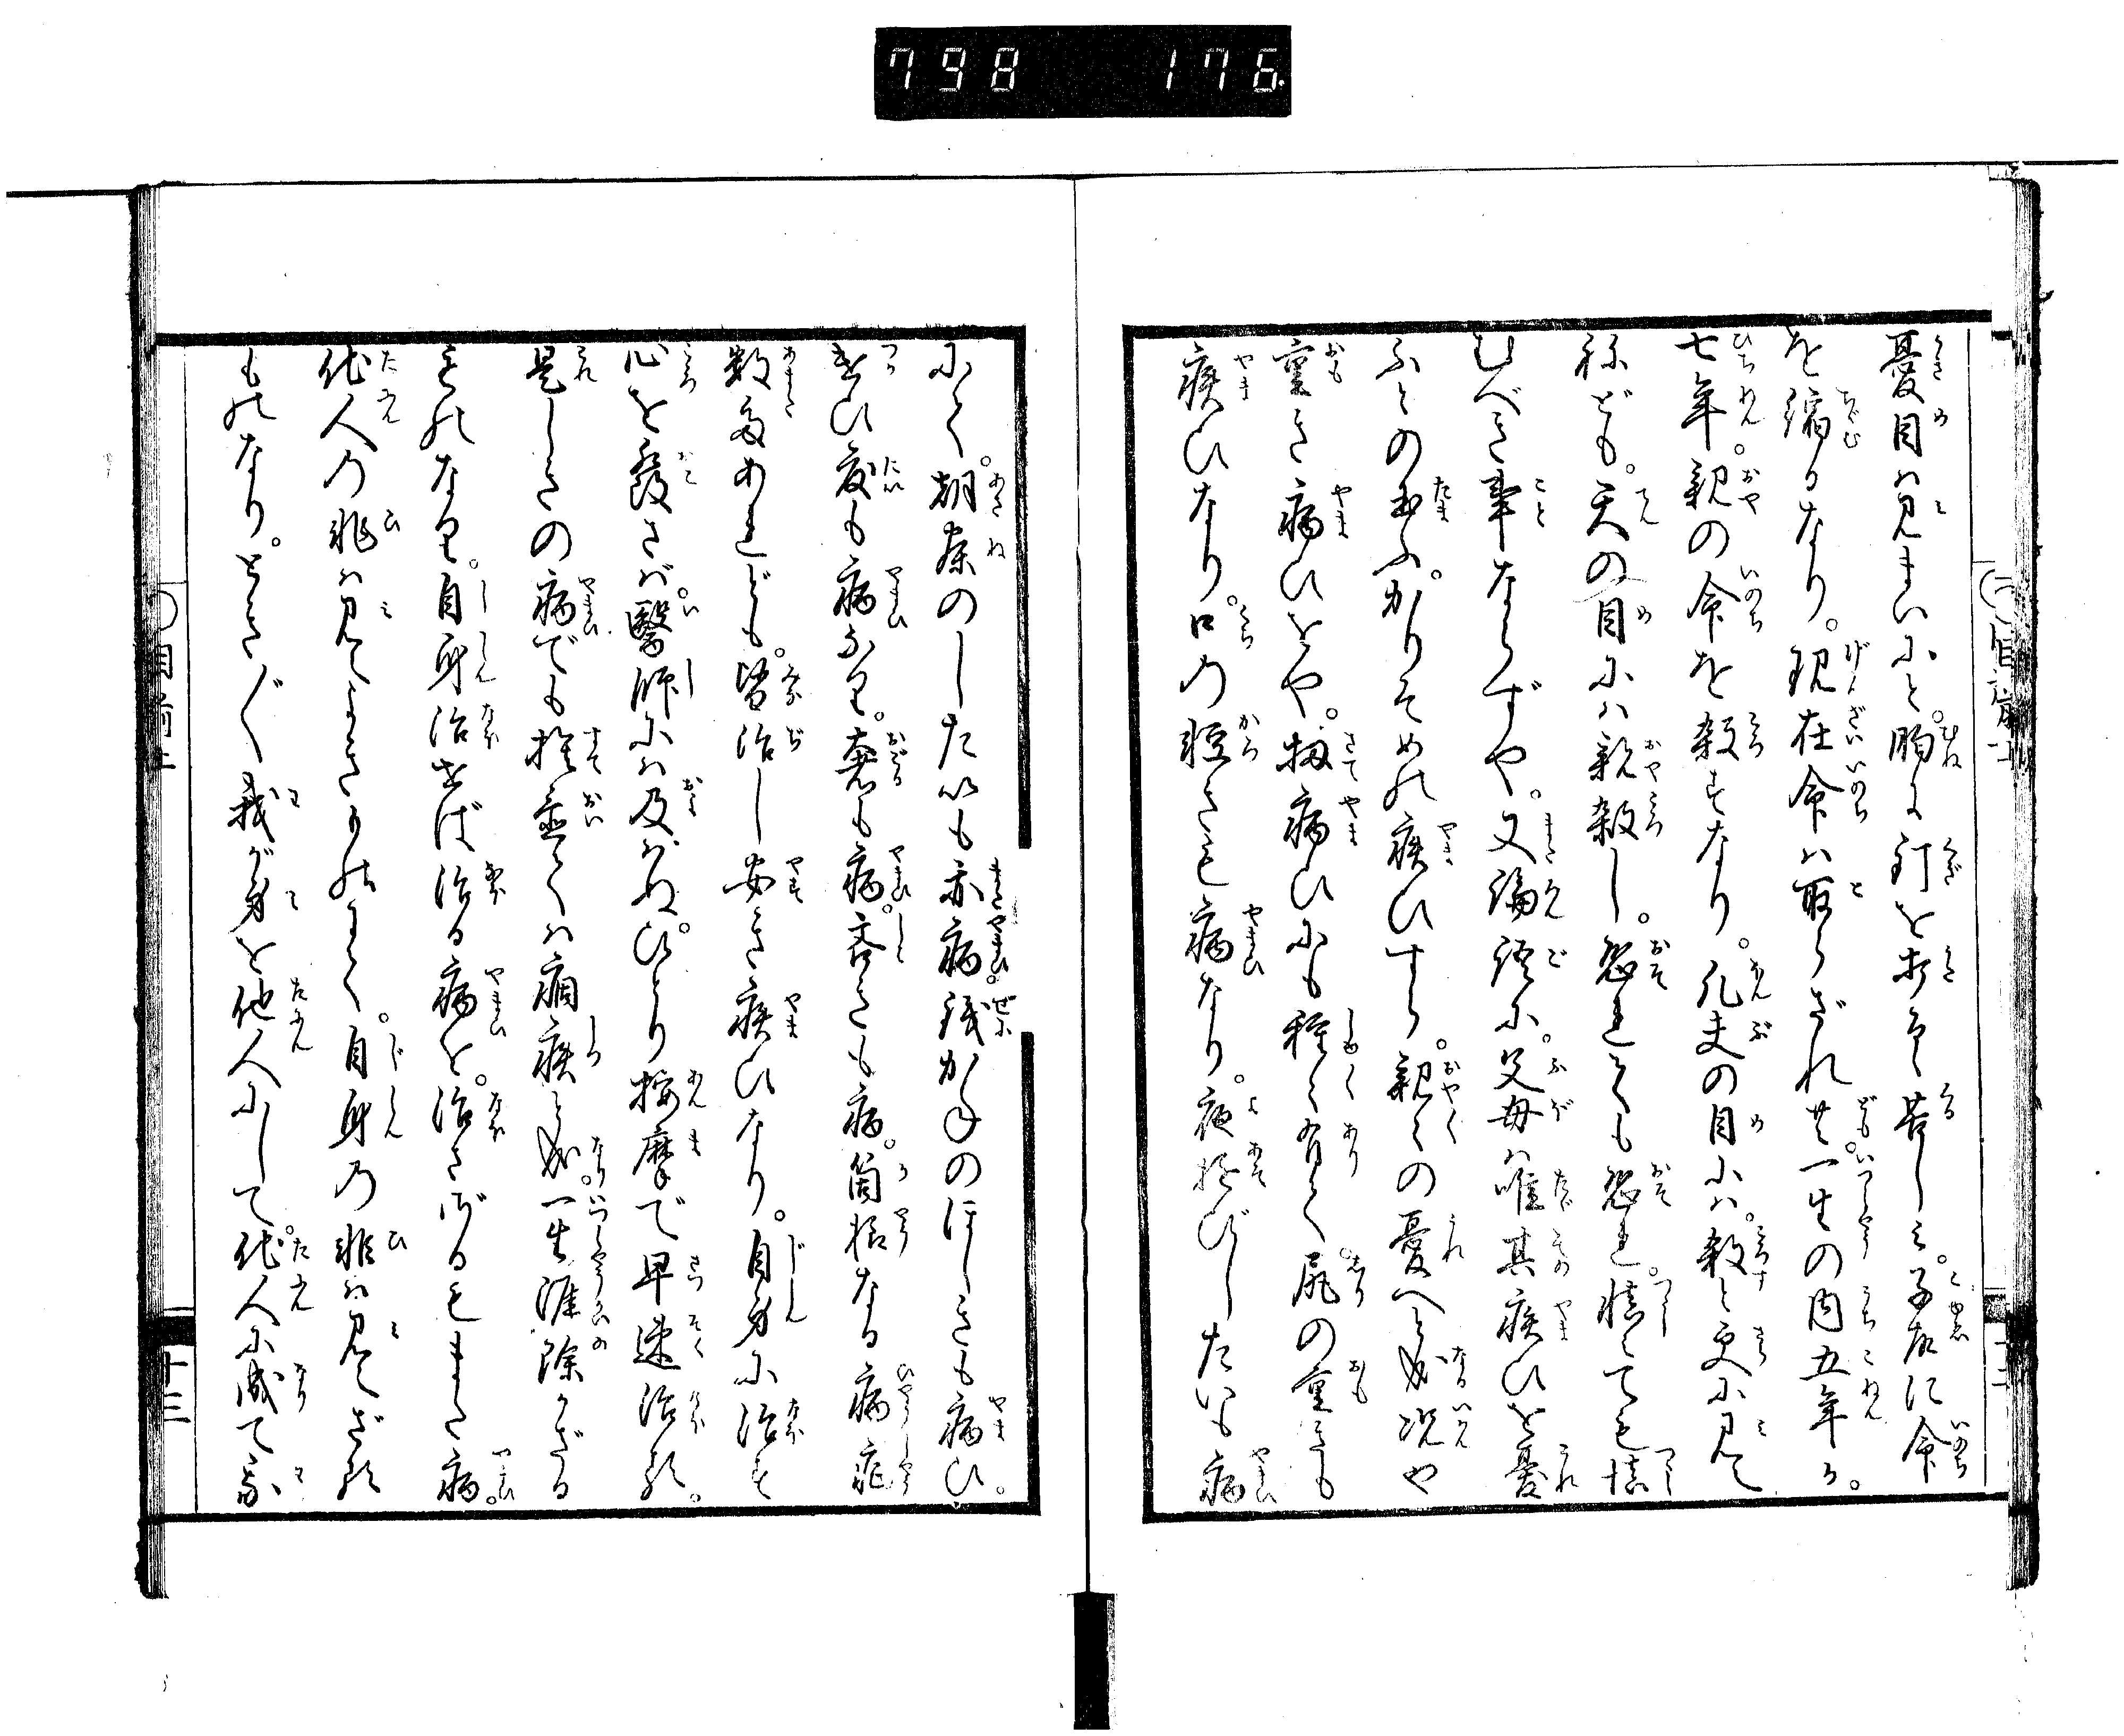 798 176
憂目は見まいぞと。胸に釘を打れて苦しみ。子故に命
を縮るなり。現在命は取らざれ共。一生の内五年か。
七年。親の命を殺すなり。凡夫の目には。殺と更に見て
ねども。天の目には親殺し。恐れても恐れ。慎みても慎
むべき事ならずや。又論語に。父母は唯其疾ひを憂
ふとの玉ふ。かりそめの疾ひすら。親々の憂へと成。况や
重き病ひをや。扨病ひにも種々有て。尻の重きも
疾ひなり。口の軽きも病なり。夜遊びしたいも病
にて。朝寐のしたいも亦病。銭かねのほしきも病ひ。
つひ度も病なり。奢も病。吝きも病。箇様なる病症
数多あれども。皆治し安き疾ひなり。自身に治す
心を發さば。醫師には及ばぬ。ひとり按摩で早速治る。
是しきの病でも捨置ては痼疾と成。一生涯除かざる
ものなり。自身治せば治る病を。治さざるもまた病。
他人の非は見てよきかねて。自身の非は見てざる
ものなり。ときどき我が身を他人にして。他人に成て我
十三